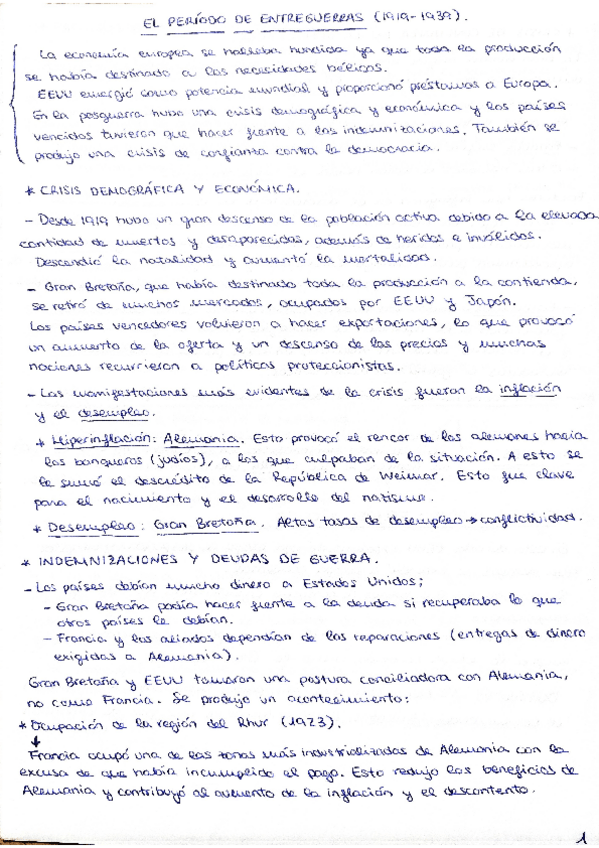 EL PERÍODO DE ENTREGUERRAS (1919-1939).
La economía europea se hallaba hundida ya que toda la producción
se había destinado a las necesidades bélicas.
EEUU emergió como potencia mundial y proporcionó préstamos a Europa.
En la posguerra hubo una crisis demográfica y económica y los países
vencidos tuvieron que hacer frente a las indemnizaciones. También se
produjo una crisis de confianza contra la democracia.
* CRISIS DEMOGRÁFICA Y ECONÓMICA.
- Desde 1919 hubo un gran descenso de la población activa debido a la elevada
cantidad de muertos y desaparecidos, además de heridos e inválidos.
Descendió la natalidad y aumentó la mortalidad.
- Gran Bretaña, que había destinado toda la producción a la contienda,
se retiró de muchos mercados, ocupados por EEUU y Japón.
Los países vencedores volvieron a hacer exportaciones, lo que provocó
un aumento de la oferta y un descenso de los precios y muchas
naciones recurrieron a políticas proteccionistas.
- Las manifestaciones más evidentes de la crisis fueron la inflación
y el desempleo.
* Hiperinflación: Alemania. Esto provocó el rencor de los alemanes hacia
los banqueros (judíos), a los que culpaban de la situación. A esto se
le sumó el descrédito de la República de Weimar. Esto fue clave
para el nacimiento y el desarrollo del nazismo.
* Desempleo: Gran Bretaña. Altas tasas de desempleo → conflictividad.
* INDEMNIZACIONES Y DEUDAS DE GUERRA.
- Los países debían mucho dinero a Estados Unidos;
- Gran Bretaña podía hacer frente a la deuda si recuperaba lo que
otros países le debían.
- Francia y los aliados dependían de las reparaciones (entregas de dinero
exigidas a Alemania).
Gran Bretaña y EEUU tomaron una postura conciliadora con Alemania,
no como Francia. Se produjo un acontecimiento:
* Ocupación de la región del Rhur (1923).
↓
Francia ocupó una de las zonas más industrializadas de Alemania con la
excusa de que había incumplido el pago. Esto redujo los beneficios de
Alemania y contribuyó al aumento de la inflación y el descontento.
1